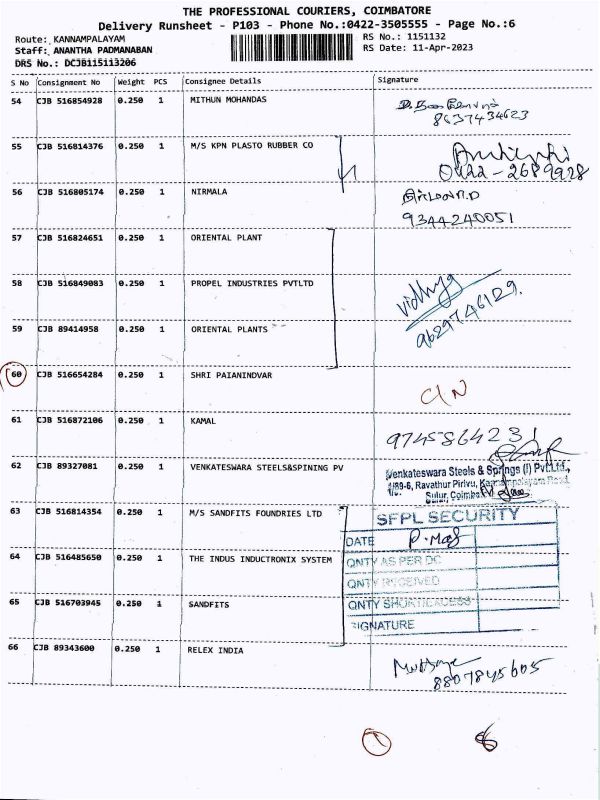 THE PROFESSIONAL COURIERS, COIMBATORE
Delivery Runsheet - P103 - Phone No.:0422-3505555 - Page No.:6
Route: KANNAMPALAYAM RS No.: 1151132
Staff: ANANTHA PADMANABAN RS Date: 11-Apr-2023
DRS No.: DCJB115113206
S No Consignment No Weight PCS Consignee Details Signature
54 CJB 516854928 0.250 1 MITHUN MOHANDAS
8637434623
55 CJB 516814376 0.250 1 M/S KPN PLASTO RUBBER CO
0422-2689928
56 CJB 516805174 0.250 1 NIRMALA
9344240051
57 CJB 516824651 0.250 1 ORIENTAL PLANT
58 CJB 516849083 0.250 1 PROPEL INDUSTRIES PVTLTD
vidhya
9629746129.
59 CJB 89414958 0.250 1 ORIENTAL PLANTS
60 CJB 516654284 0.250 1 SHRI PAIANINDVAR
61 CJB 516872106 0.250 1 KAMAL
9745864231
62 CJB 89327081 0.250 1 VENKATESWARA STEELS&SPINING PV
Venkateswara Steels & Springs (I) Pvt.Ltd.,
1/89-6, Ravathur Pirivu, Kannampalayam Road,
Sulur, Coimbatore
63 CJB 516814354 0.250 1 M/S SANDFITS FOUNDRIES LTD
SFPL SECURITY
DATE
64 CJB 516485650 0.250 1 THE INDUS INDUCTRONIX SYSTEM
QNTY AS PER DC
QNTY RECEIVED
65 CJB 516703945 0.250 1 SANDFITS
QNTY SHORT/EXCESS
SIGNATURE
66 CJB 89343600 0.250 1 RELEX INDIA
8807845605